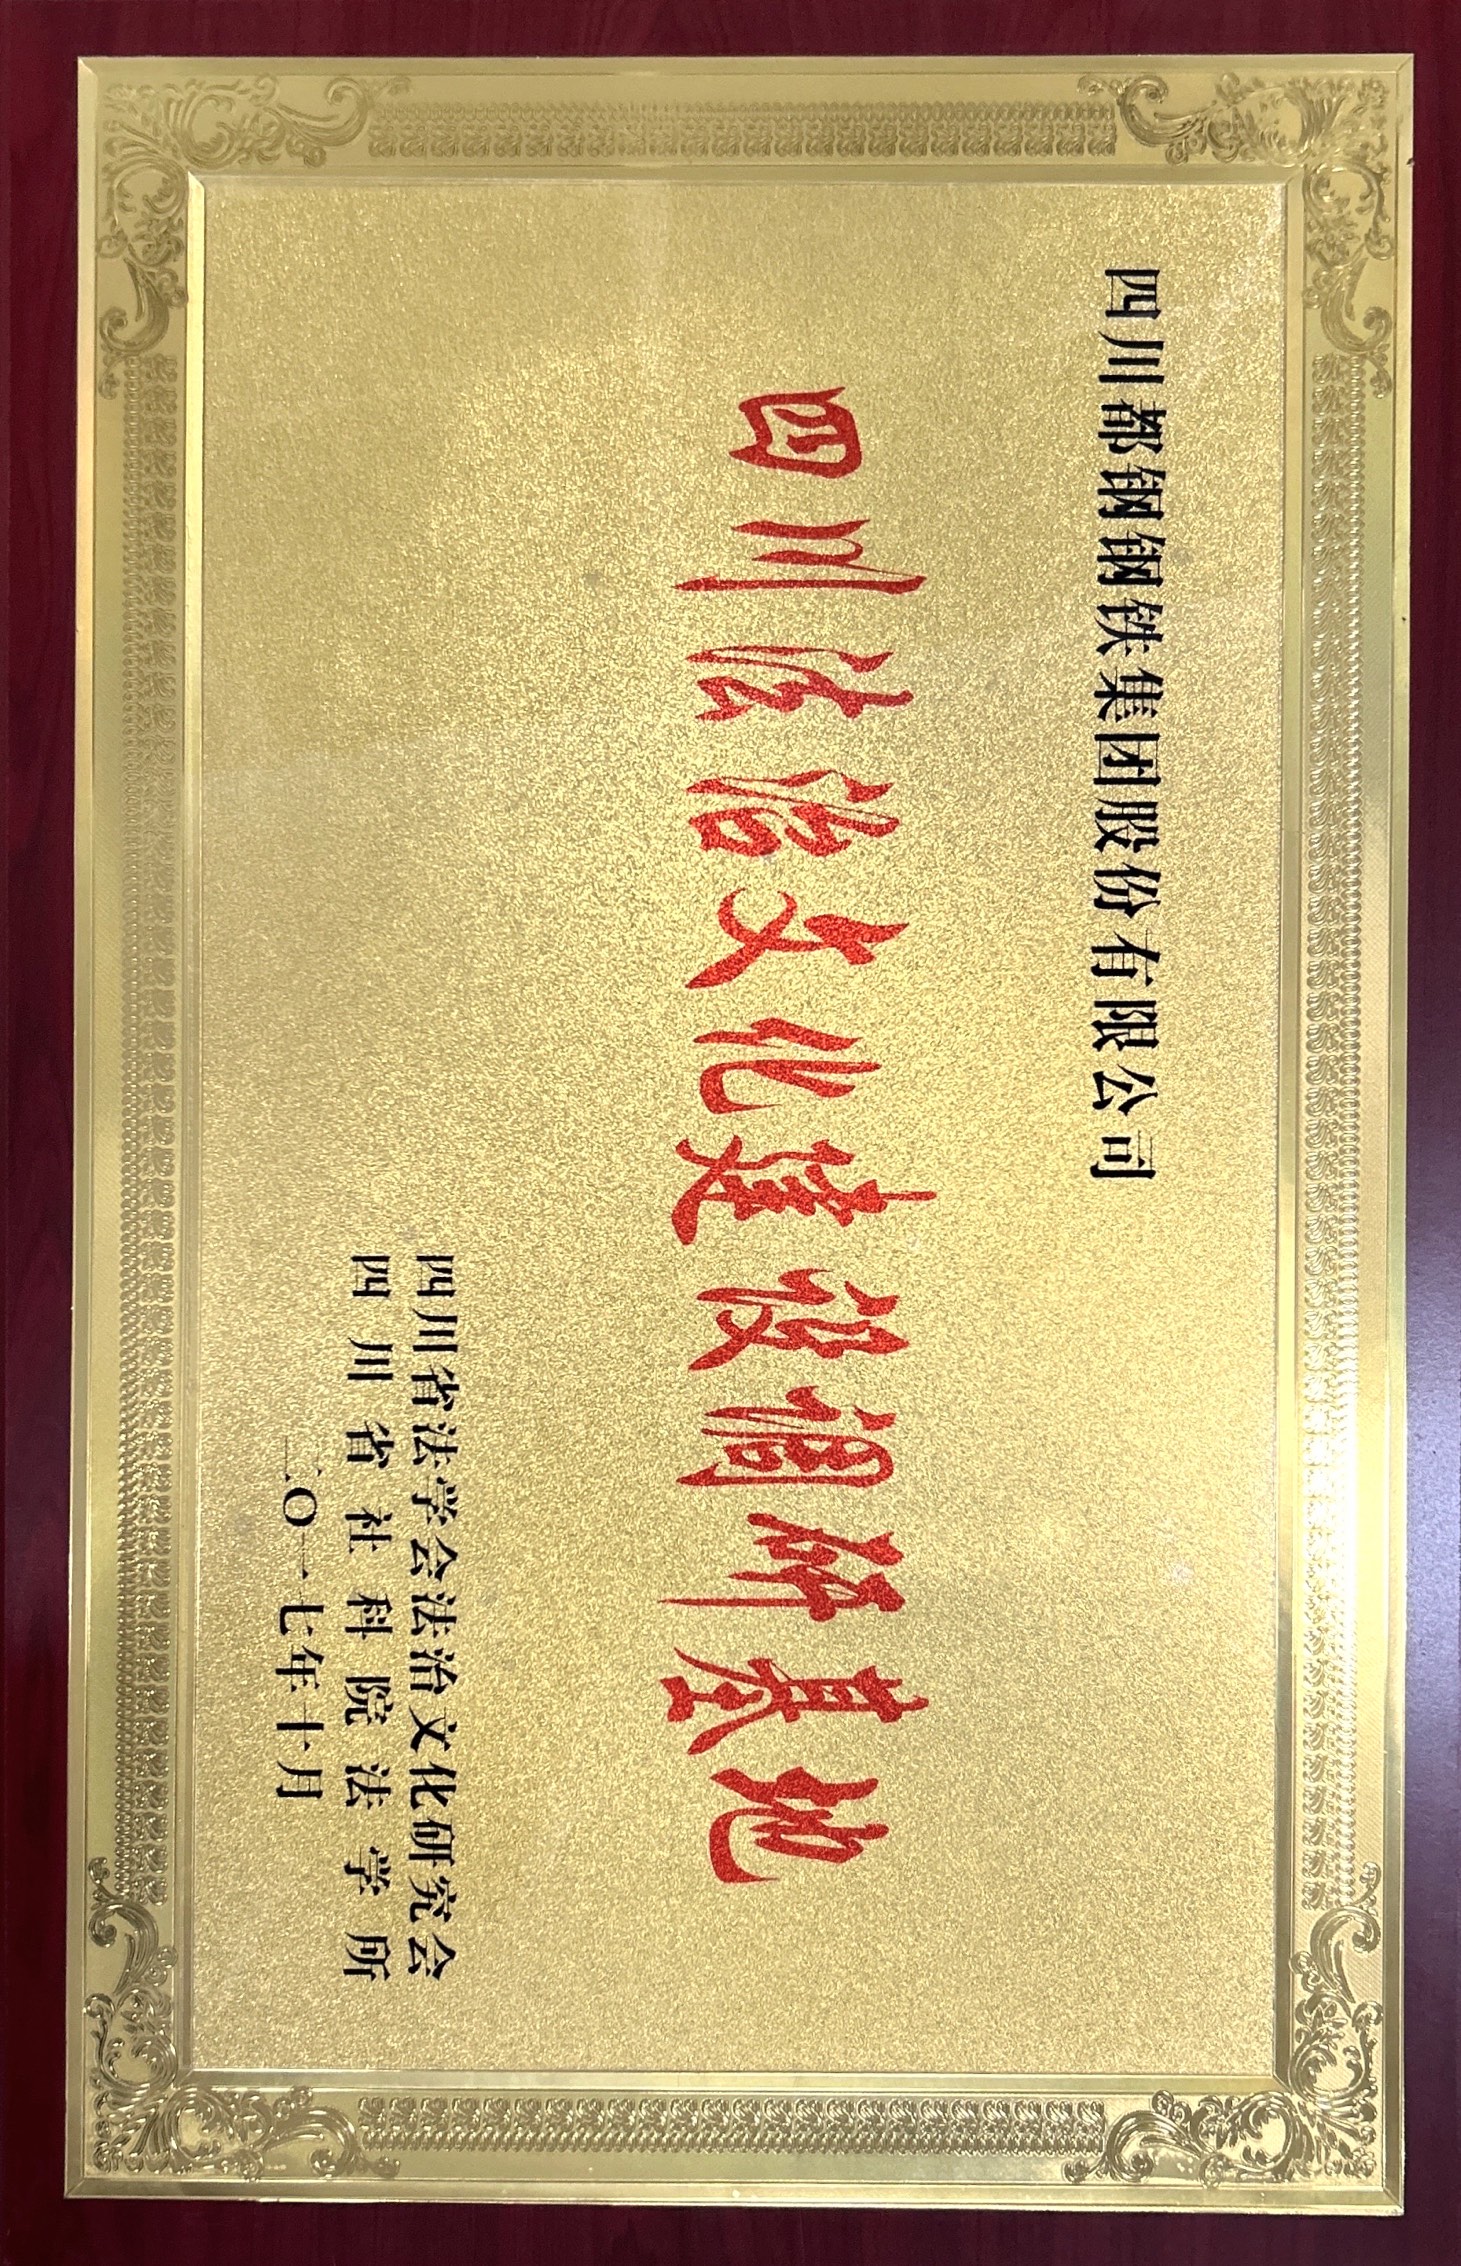 四川都钢钢铁集团股份有限公司
四川法治文化建设调研基地
四川省法学会法治文化研究会
四川省社科院法学所
二〇一七年十月